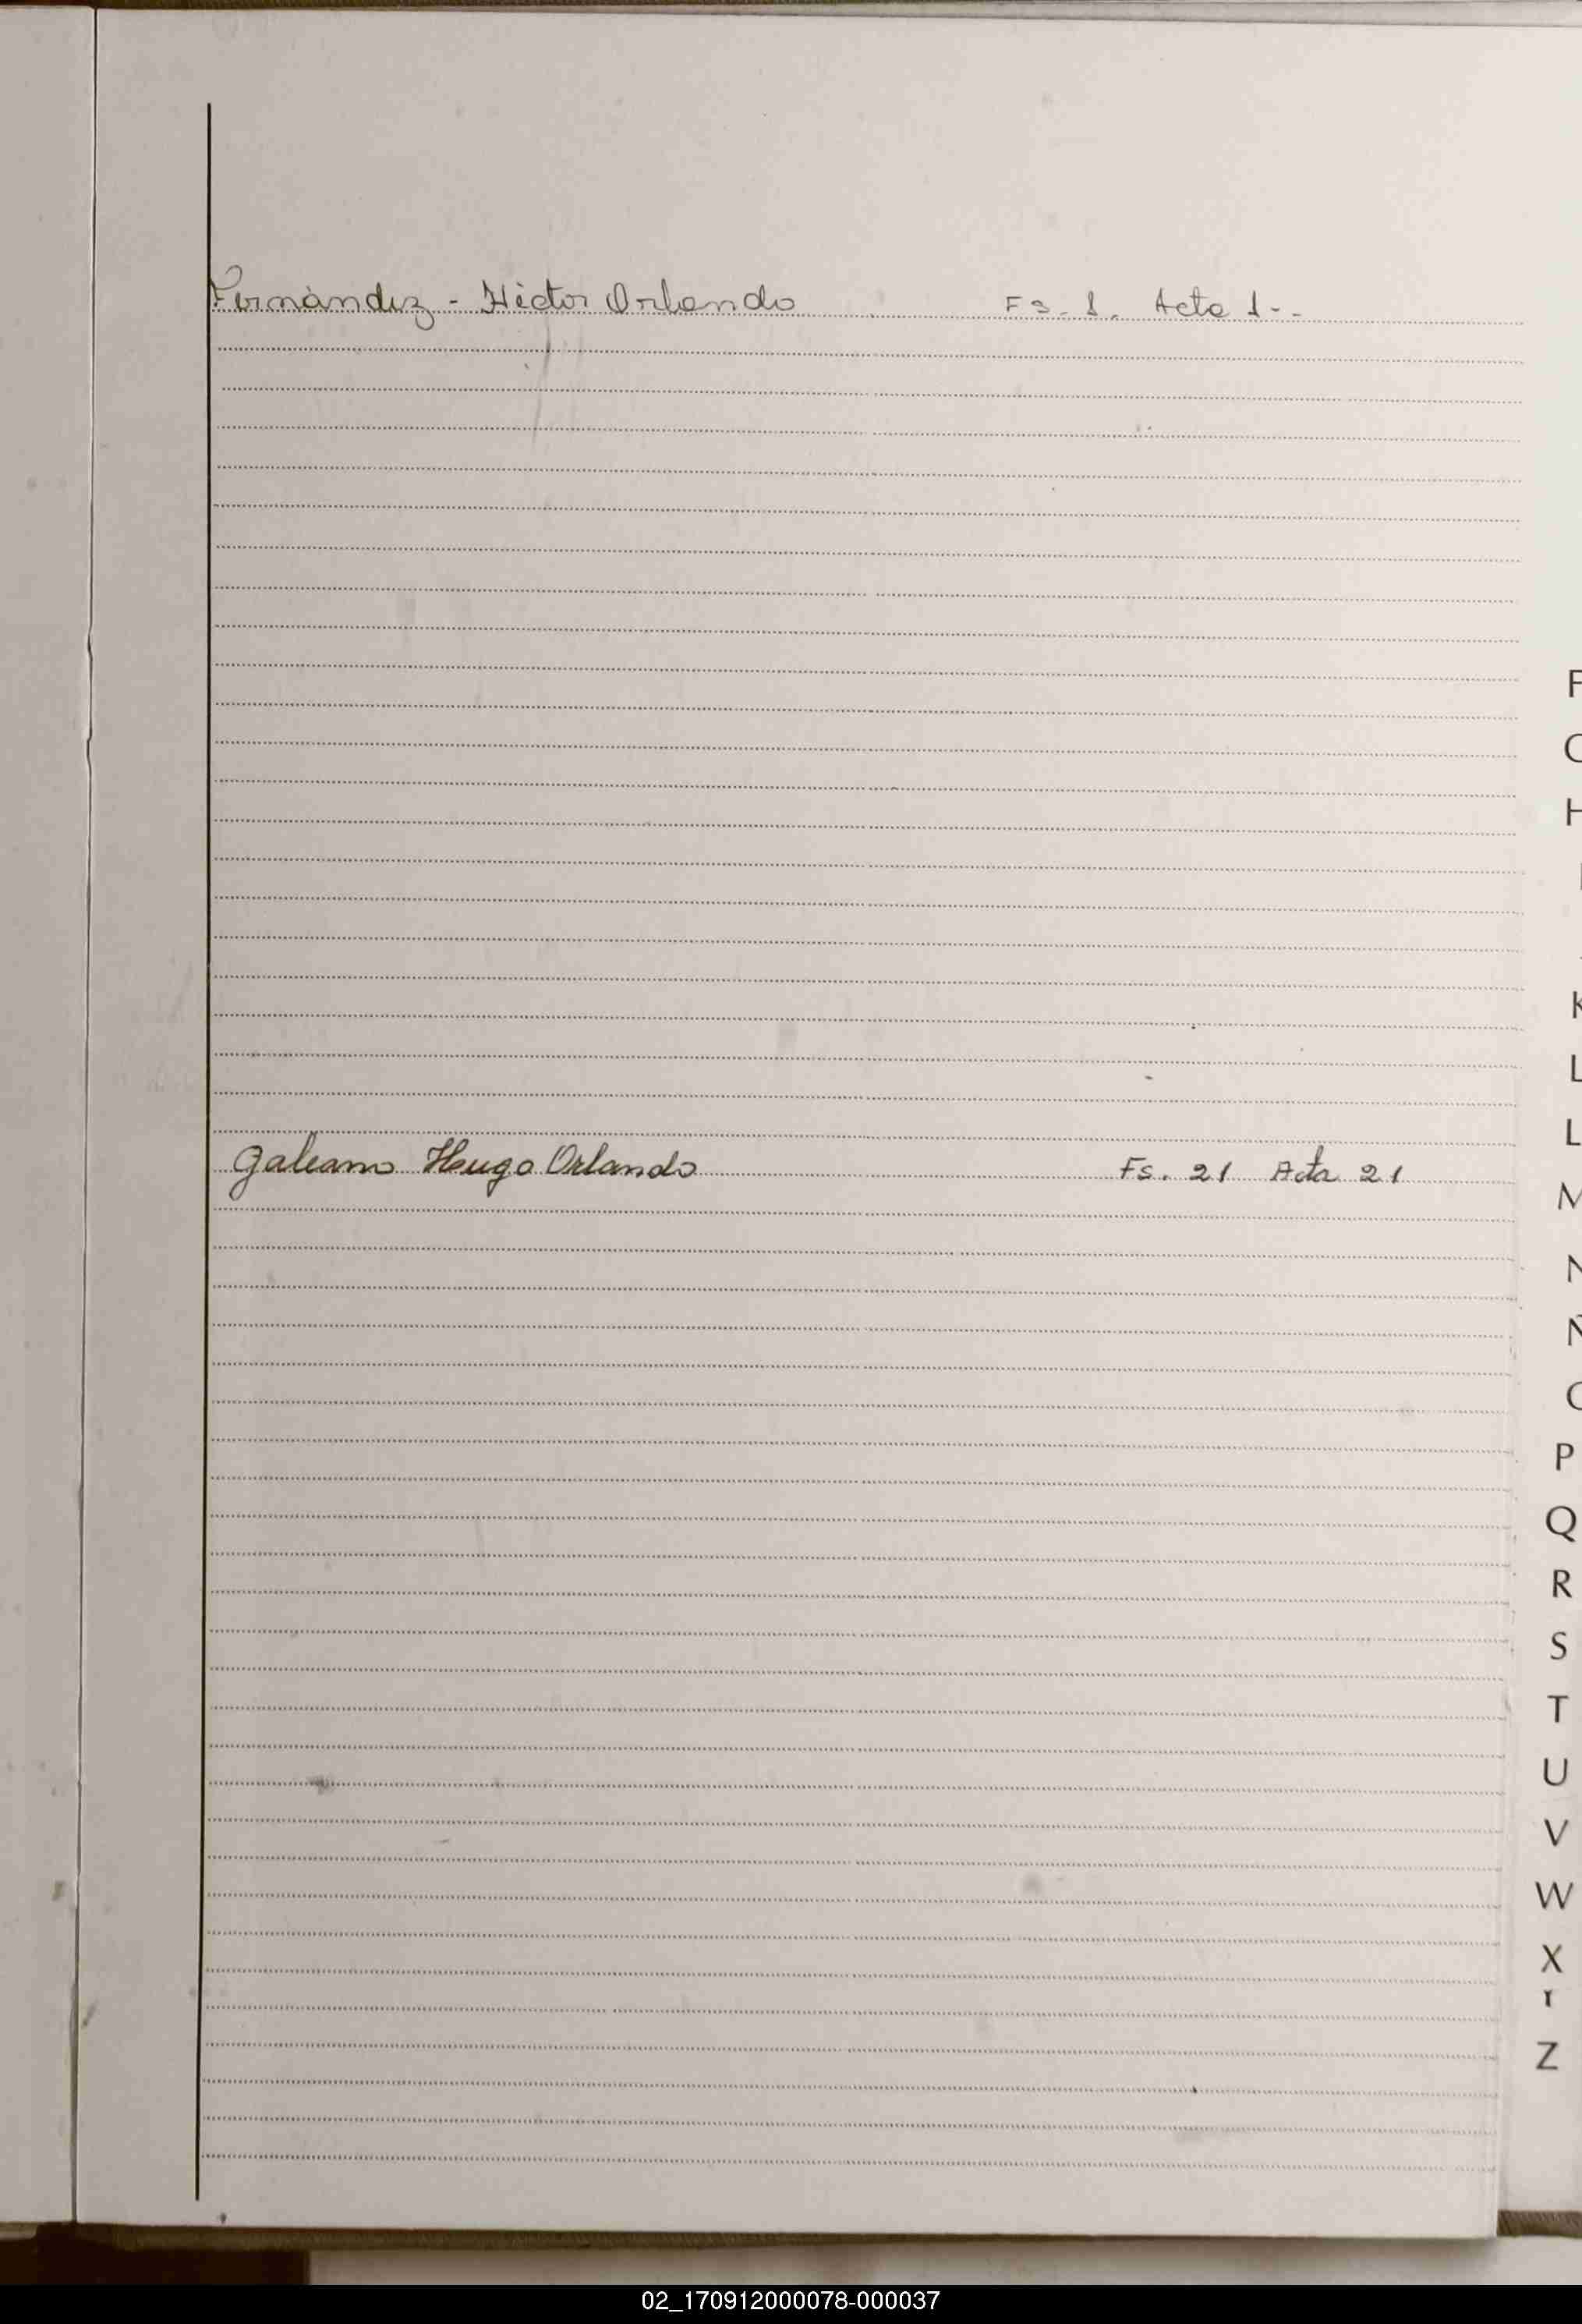 Fernández - Héctor Orlando Fs. 1. Acta 1-.
Galeano Hugo Orlando Fs. 21 Acta 21
F
H
K
L
L
M
N
Ñ
P
Q
R
S
T
U
V
W
X
Z
02_170912000078-000037